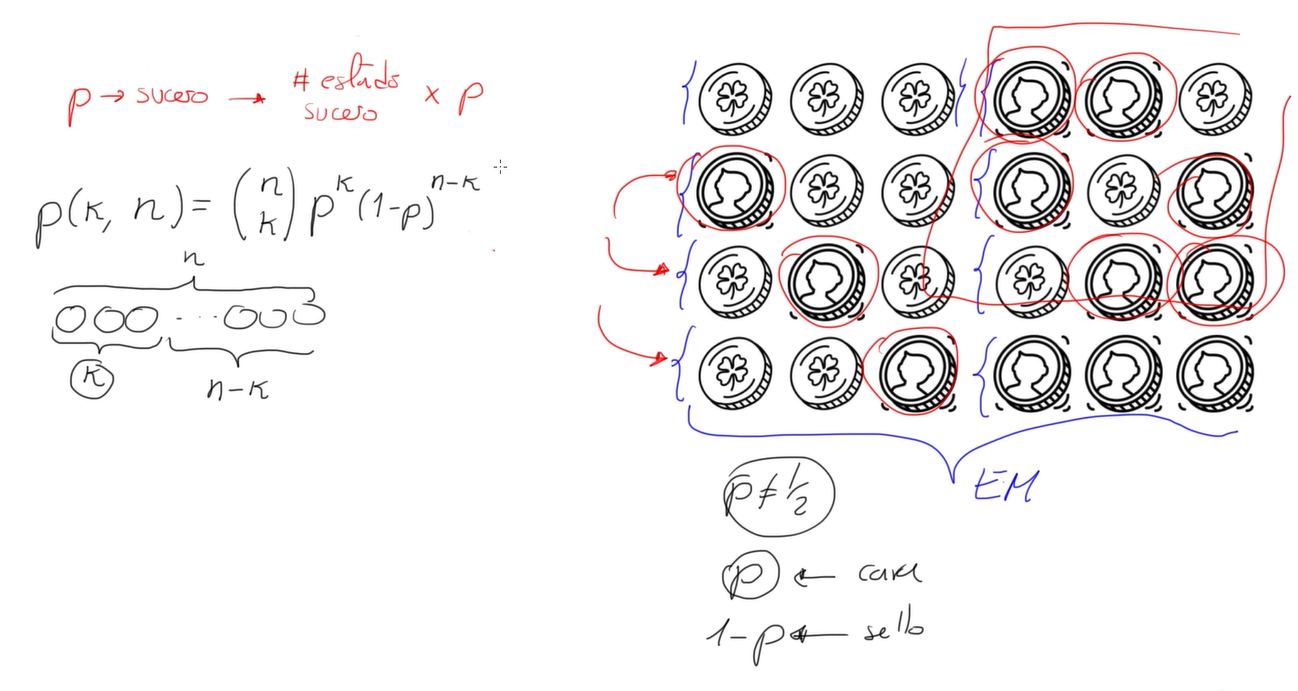 p → suceso → # estados suceso × p
p(k, n) = (n k) p^k (1-p)^{n-k}
n
k
n-k
EM
p ≠ 1/2
p ← cara
1-p ← sello